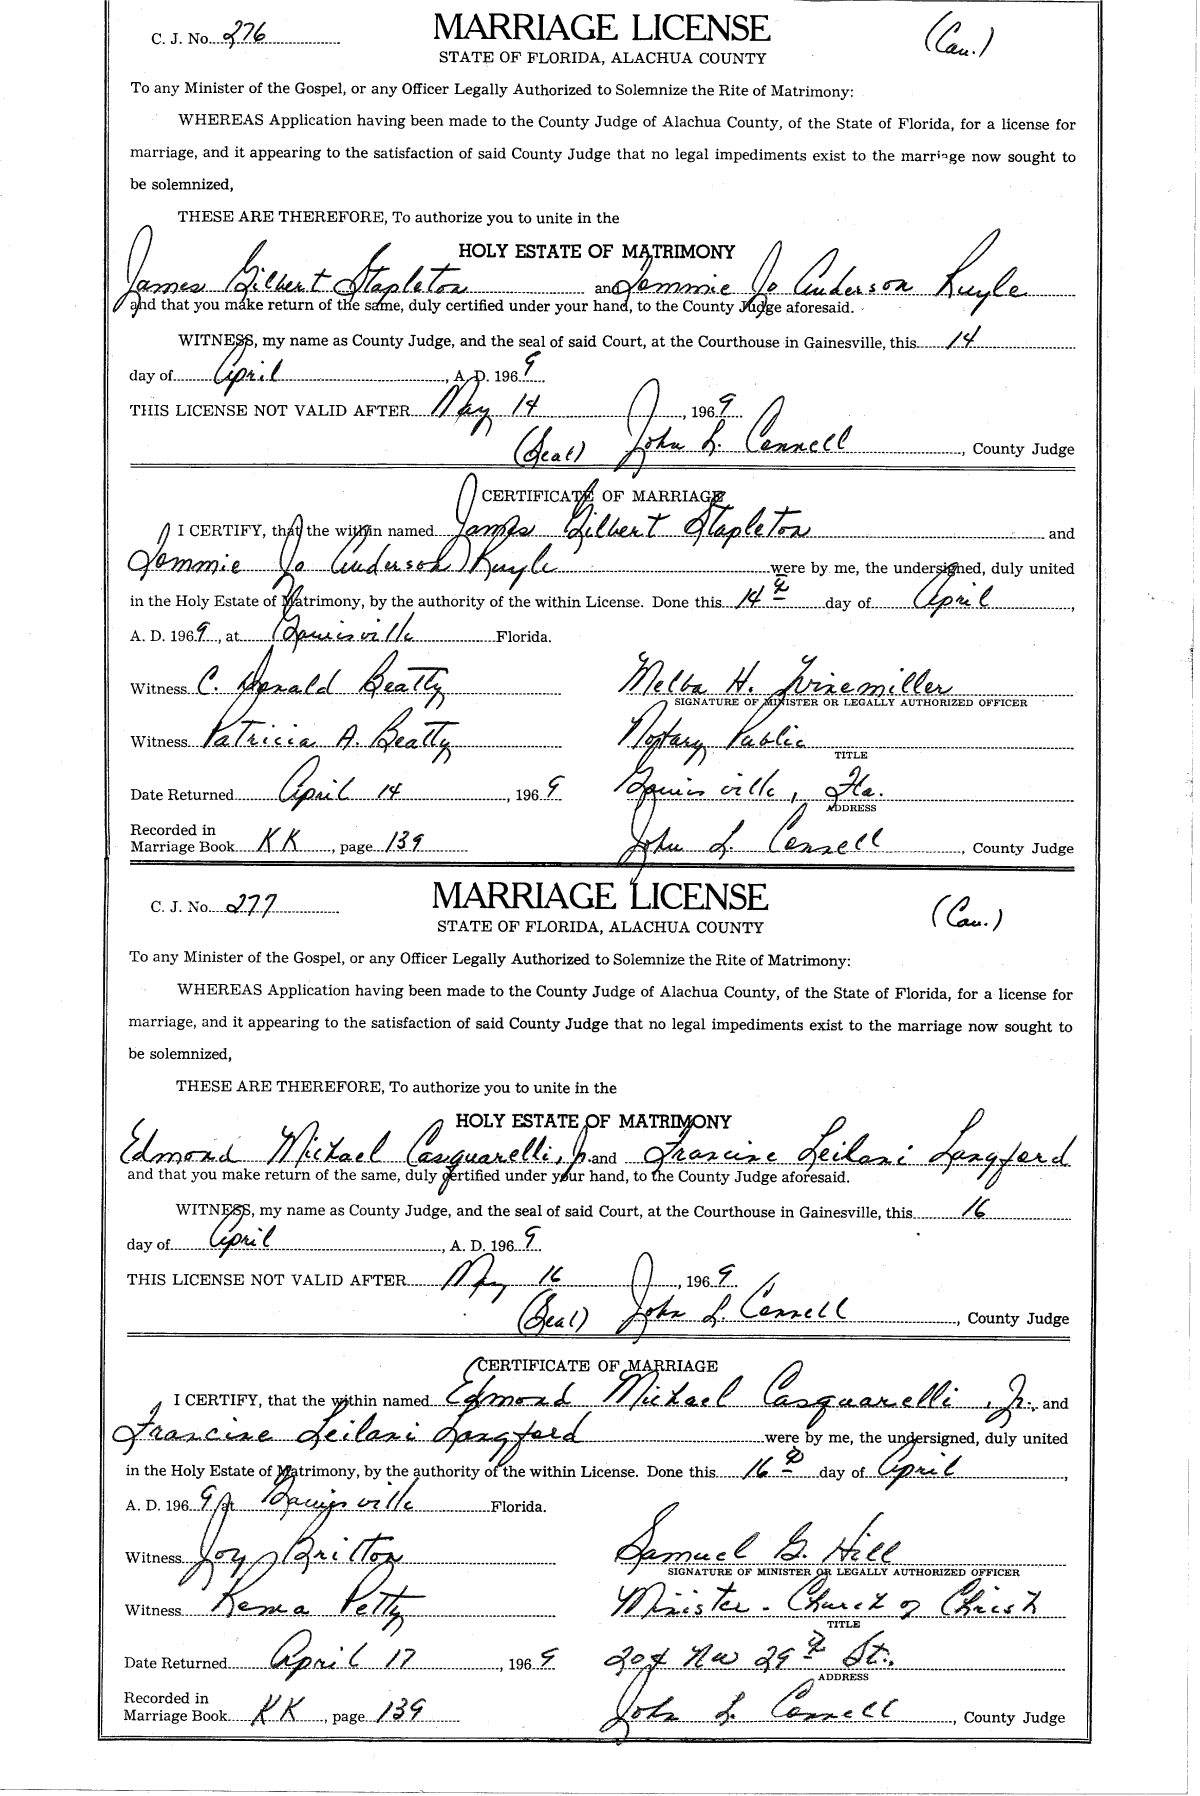 C. J. No. 276
MARRIAGE LICENSE
(Cau.)
STATE OF FLORIDA, ALACHUA COUNTY
To any Minister of the Gospel, or any Officer Legally Authorized to Solemnize the Rite of Matrimony:
WHEREAS Application having been made to the County Judge of Alachua County, of the State of Florida, for a license for
marriage, and it appearing to the satisfaction of said County Judge that no legal impediments exist to the marriage now sought to
be solemnized,
THESE ARE THEREFORE, To authorize you to unite in the
HOLY ESTATE OF MATRIMONY
James Gilbert Stapleton and Tommie Jo Anderson Kuyle
and that you make return of the same, duly certified under your hand, to the County Judge aforesaid.
WITNESS, my name as County Judge, and the seal of said Court, at the Courthouse in Gainesville, this 14
day of April, A. D. 1969
THIS LICENSE NOT VALID AFTER May 14, 1969
(Seal) John L. Connell, County Judge
CERTIFICATE OF MARRIAGE
I CERTIFY, that the within named James Gilbert Stapleton and
Tommie Jo Anderson Kuyle were by me, the undersigned, duly united
in the Holy Estate of Matrimony, by the authority of the within License. Done this 14th day of April,
A. D. 1969, at Gainesville Florida.
Witness C. Donald Beatty Melba H. Winemiller
SIGNATURE OF MINISTER OR LEGALLY AUTHORIZED OFFICER
Witness Patricia A. Beatty Notary Public
TITLE
Date Returned April 14, 1969 Gainesville, Fla.
ADDRESS
Recorded in
Marriage Book KK, page 139 John L. Connell, County Judge
C. J. No. 277
MARRIAGE LICENSE
(Cau.)
STATE OF FLORIDA, ALACHUA COUNTY
To any Minister of the Gospel, or any Officer Legally Authorized to Solemnize the Rite of Matrimony:
WHEREAS Application having been made to the County Judge of Alachua County, of the State of Florida, for a license for
marriage, and it appearing to the satisfaction of said County Judge that no legal impediments exist to the marriage now sought to
be solemnized,
THESE ARE THEREFORE, To authorize you to unite in the
HOLY ESTATE OF MATRIMONY
Edmond Michael Casquarelli, Jr. and Francine Leilani Langford
and that you make return of the same, duly certified under your hand, to the County Judge aforesaid.
WITNESS, my name as County Judge, and the seal of said Court, at the Courthouse in Gainesville, this 16
day of April, A. D. 1969
THIS LICENSE NOT VALID AFTER May 16, 1969
(Seal) John L. Connell, County Judge
CERTIFICATE OF MARRIAGE
I CERTIFY, that the within named Edmond Michael Casquarelli, Jr., and
Francine Leilani Langford were by me, the undersigned, duly united
in the Holy Estate of Matrimony, by the authority of the within License. Done this 16th day of April,
A. D. 1969, at Gainesville Florida.
Witness Joy Britton Samuel G. Hill
SIGNATURE OF MINISTER OR LEGALLY AUTHORIZED OFFICER
Witness Rema Petty Minister - Church of Christ
TITLE
Date Returned April 17, 1969 204 NW 29th St.
ADDRESS
Recorded in
Marriage Book KK, page 139 John L. Connell, County Judge